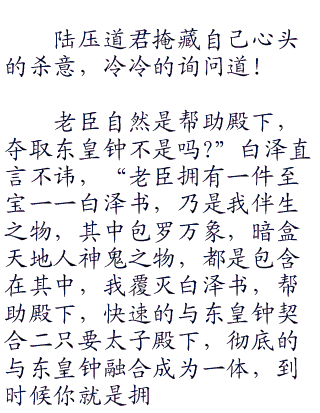 陆压道君掩藏自己心头
的杀意，冷冷的询问道！
老臣自然是帮助殿下，
夺取东皇钟不是吗？”白泽直
言不讳，“老臣拥有一件至
宝一一白泽书，乃是我伴生
之物，其中包罗万象，暗盒
天地人神鬼之物，都是包含
在其中，我覆灭白泽书，帮
助殿下，快速的与东皇钟契
合二只要太子殿下，彻底的
与东皇钟融合成为一体，到
时候你就是拥